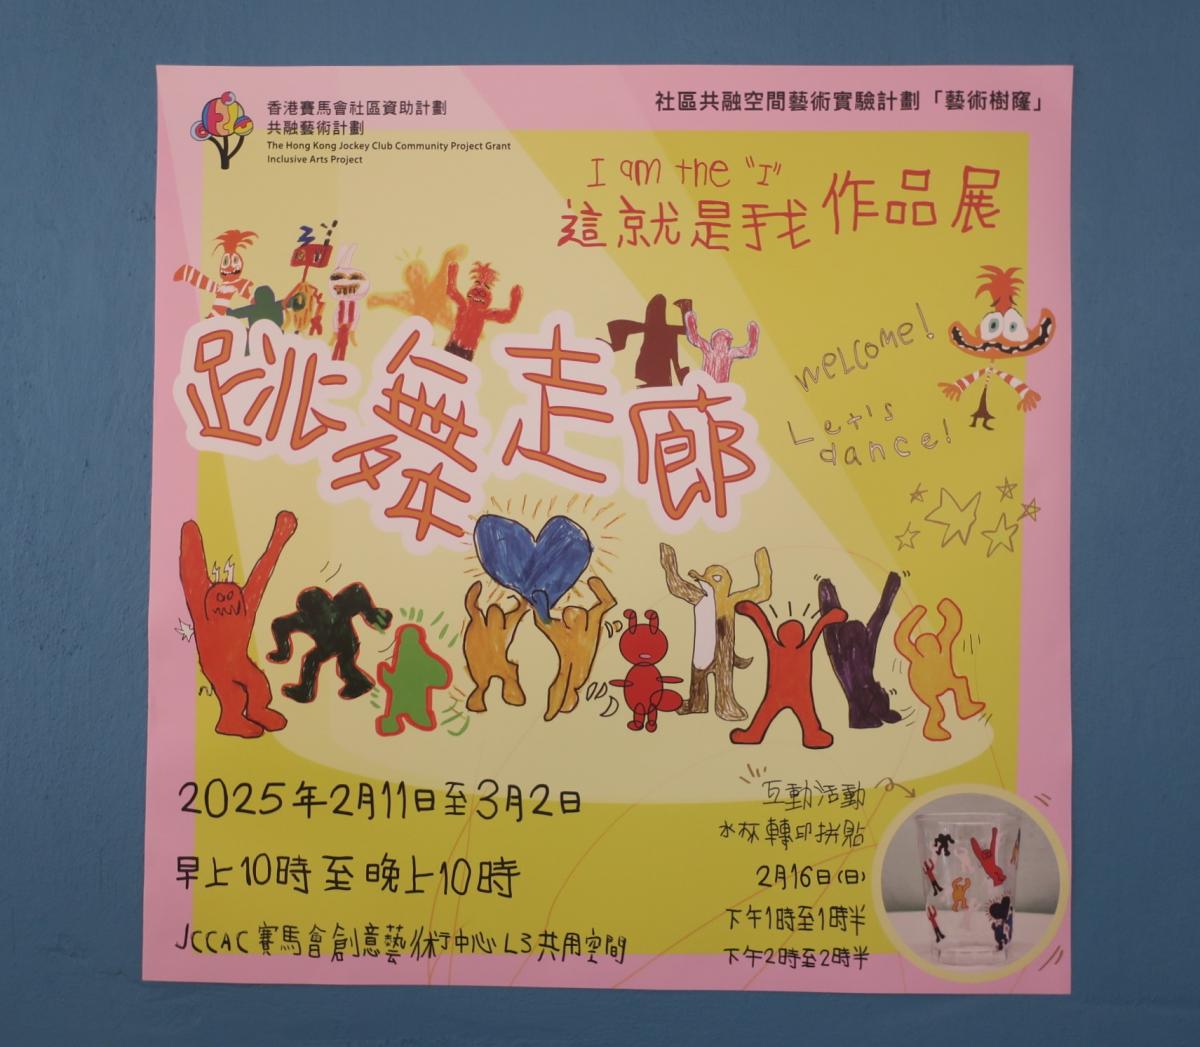 香港賽馬會社區資助計劃
共融藝術計劃
The Hong Kong Jockey Club Community Project Grant
Inclusive Arts Project
社區共融空間藝術實驗計劃「藝術樹窿」
I am the "I"
這就是我 作品展
跳舞走廊
welcome!
Let's
dance!
2025年2月11日至3月2日
早上10時至晚上10時
JCCAC 賽馬會創意藝術中心 L3 共用空間
互動活動
水杯轉印拼貼
2月16日(日)
下午1時至1時半
下午2時至2時半